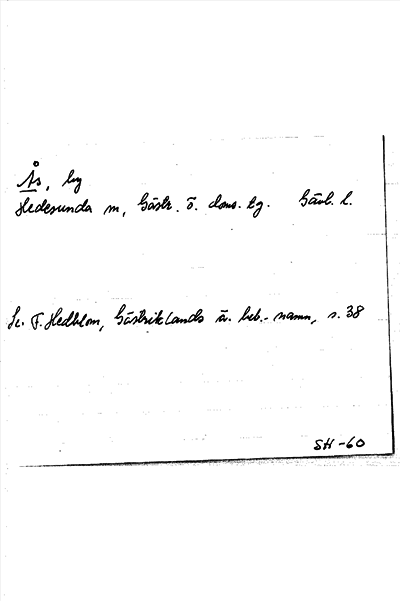 Ås, by
Hedesunda sn, Gästr. ö. doms. tg. Gävl. l.
Se F. Hedblom, Gästriklands ä. beb.-namn, s. 38
SH-60